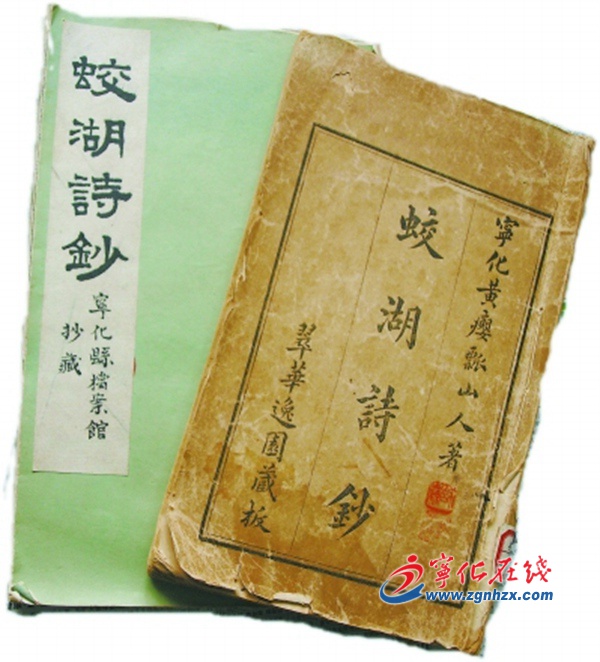 蛟湖詩鈔
寧化縣檔案館
抄藏
寧化黃癭瓢山人著
蛟湖詩鈔
翠華逸園藏板
寧化在线
www.zgnhzx.com